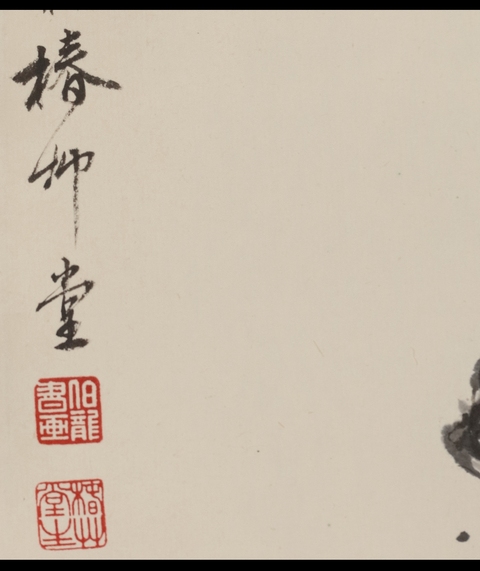 椿仰堂
伯龍
書画
椿仰
堂主